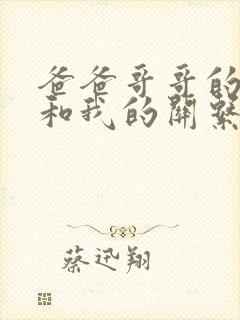 爸爸哥哥的
和我的關繫
蔡迅翔